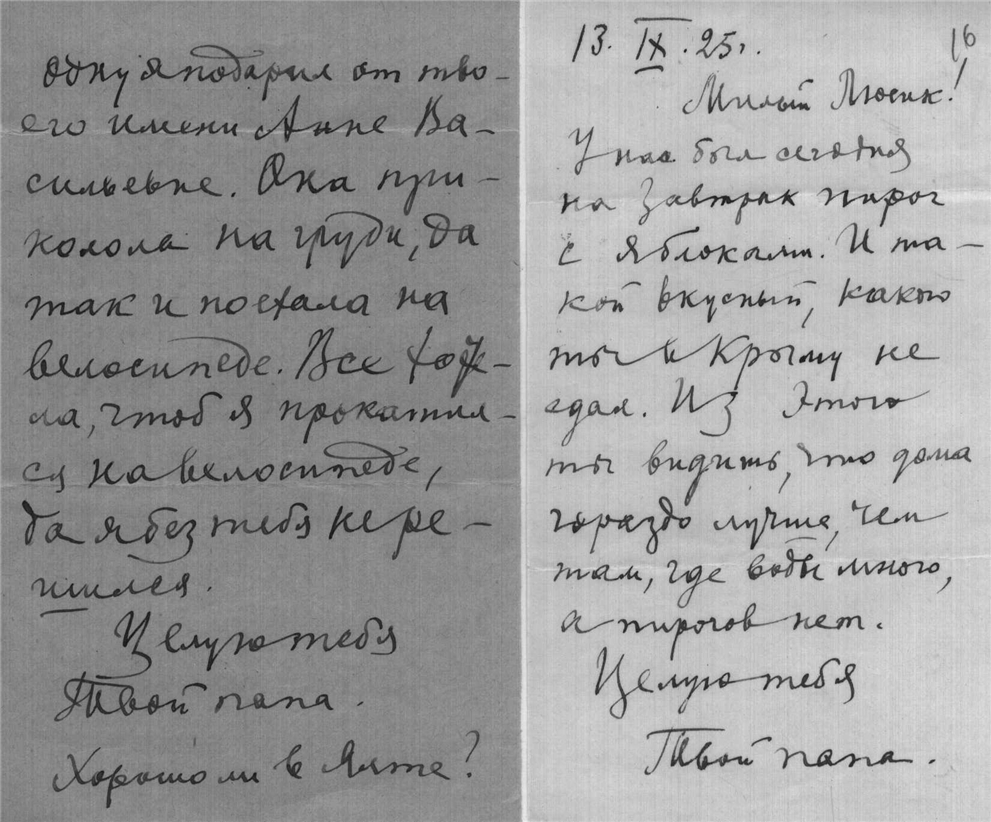 одну я подарил от тво-
его имени Анне Ва-
сильевне. Она при-
колола на груди, да
так и поехала на
велосипеде. Все хоте-
ла, чтоб я прокатил-
ся на велосипеде,
да я без тебя не ре-
шился.
Целую тебя
Твой папа.
Хорошо ли в Ялте?
13. IX. 25г.
16
Милый Люсик!
У нас был сегодня
на завтрак пирог
с яблоками. И та-
кой вкусный, какого
ты в Крыму не
едал. Из этого
ты видишь, что дома
гораздо лучше, чем
там, где воды много,
а пирогов нет.
Целую тебя
Твой папа.